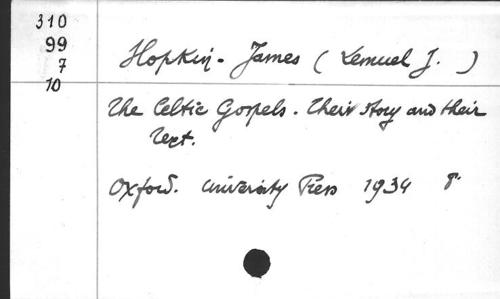 310
99
7
10
Hopkin-James (Lemuel J. )
The Celtic Gospels. Their story and their
Text.
Oxford. University Press 1934 8°